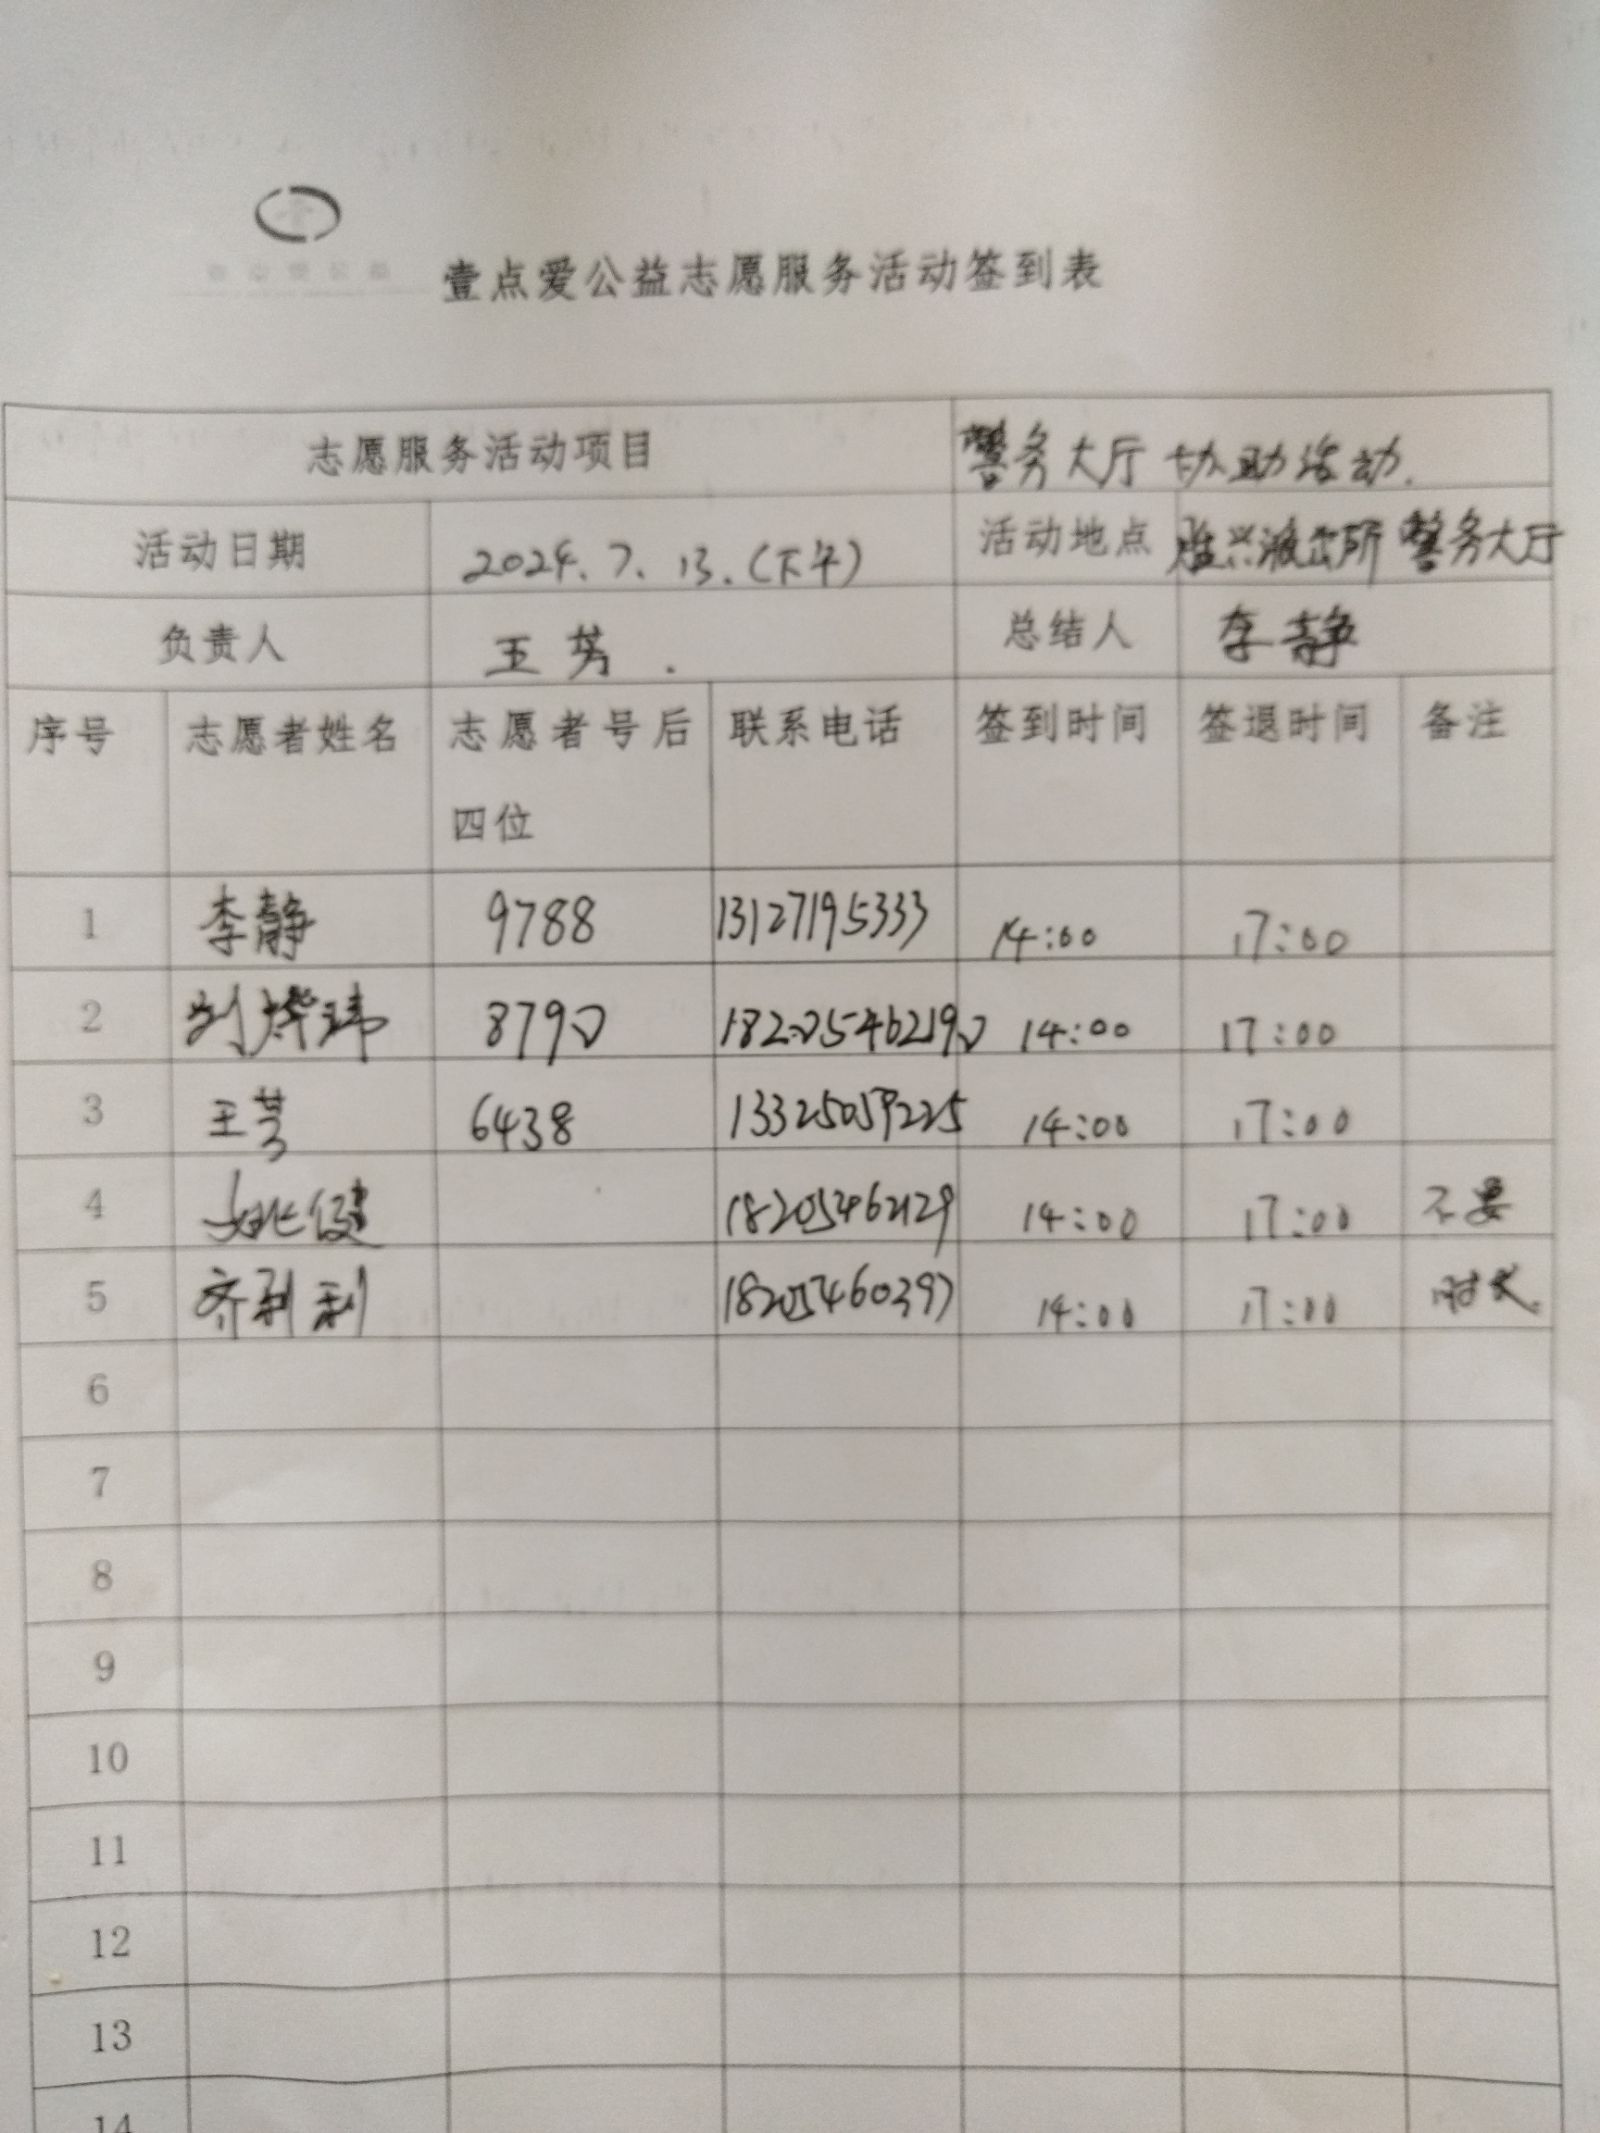 壹点爱公益志愿服务活动签到表
志愿服务活动项目 警务大厅协助活动.
活动日期 2024.7.13.(下午) 活动地点 胜兴派出所 警务大厅
负责人 王芳. 总结人 李静
序号 志愿者姓名 志愿者号后四位 联系电话 签到时间 签退时间 备注
1 李静 9788 13127195333 14:00 17:00
2 刘烨玮 8790 18205462190 14:00 17:00
3 王芳 6438 13325059225 14:00 17:00
4 姚健 18205462129 14:00 17:00 不要
5 齐利利 18205460397 14:00 17:00 时长.
6
7
8
9
10
11
12
13
14